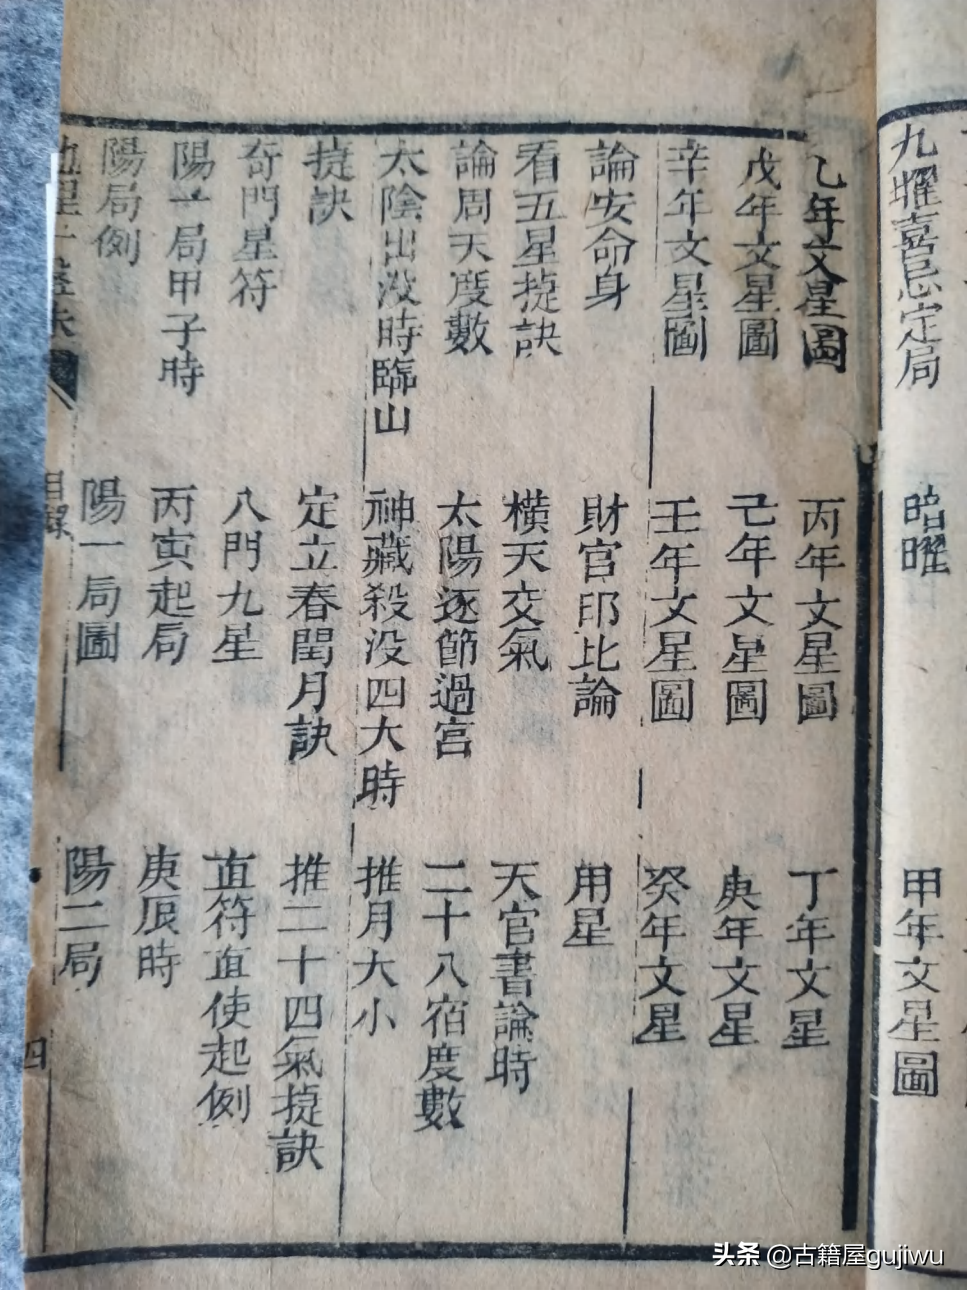 九曜喜忌定局
啗曜
甲年文星圖
乙年文星圖
丙年文星圖
丁年文星
戊年文星圖
己年文星圖
庚年文星
辛年文星圖
壬年文星圖
癸年文星
論安命身
財官印比論
用星
看五星㨗訣
橫天交氣
天官書論時
論周天度數
太陽逐節過宮
二十八宿度數
太陰出没時臨山
神藏殺没四大時
推月大小
㨗訣
定立春閏月訣
推二十四氣㨗訣
奇門星符
八門九星
直符直使起例
陽一局甲子時
丙寅起局
庚辰時
陽局例
陽一局圖
陽二局
目錄
四
头条 @古籍屋gujiwu